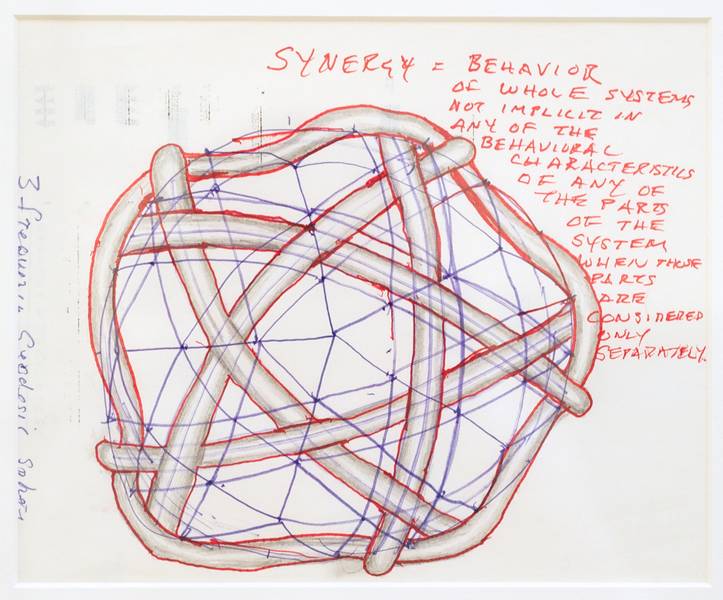 SYNERGY = BEHAVIOR
OF WHOLE SYSTEMS
NOT IMPLICIT IN
ANY OF THE
BEHAVIORAL
CHARACTERISTICS
OF ANY OF
THE PARTS
OF THE
SYSTEM
WHEN THOSE
PARTS
ARE
CONSIDERED
ONLY
SEPARATELY.
3 frequency Geodesic Sphere